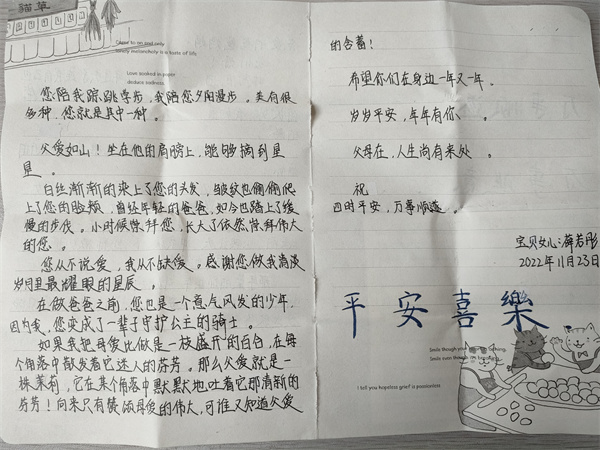 貓草
Close to me and only
lonely melancholy is a taste of life
Love soaked in paper
deduce sadness
您陪我蹒跚学步，我陪您夕阳漫步。关有很
多种，您就是其中一种。
父爱如山！坐在他的肩膀上，能够摘到星
星。
白丝渐渐的染上了您的头发，皱纹也偷偷爬
上了您的脸颊，曾经年轻的爸爸，如今也踏上了缓
慢的步伐。小时候崇拜您，长大了依然崇拜伟大
的您。
您从不说爱，我从不缺爱。感谢您做我满淡
岁月里最耀眼的星辰。
在做爸爸之前，您也是一个意气风发的少年，
因为我，您变成了一辈子守护公主的骑士。
如果我把母爱比做是一枝盛开的百合，在每
个角落中散发着它迷人的芬芳。那么父爱就是一
株茉莉，它在某个角落中默默地吐着它那清新的
芬芳！向来只有赞颂母爱的伟大，可谁又知道父爱
的含蓄！
希望你们在身边一年又一年。
岁岁平安，年年有你。
父母在，人生尚有来处。
祝
四时平安，万事顺遂。
宝贝女儿：薛若彤
2022年11月23日
平安喜樂
Smile though your
Smile even though
I tell you hopeless grief is passionless